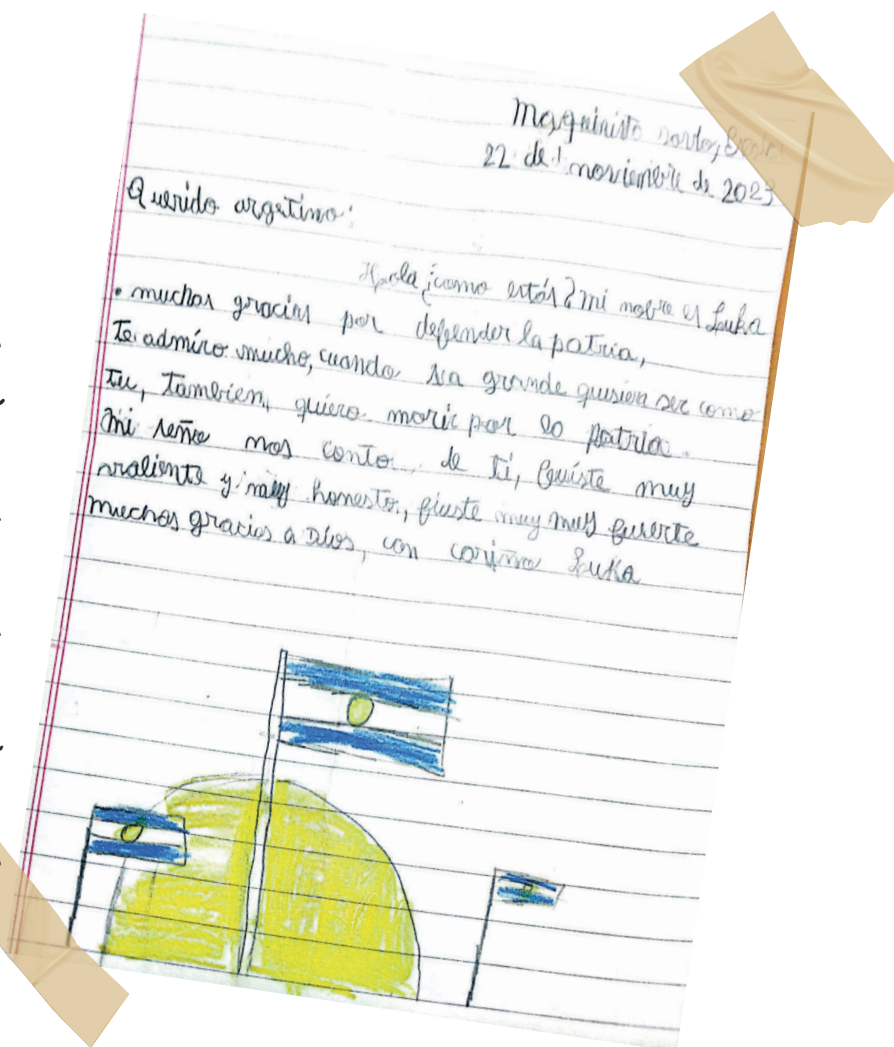 Maquinista
22 de noviembre de 2023
Querido argetino:
Hola ¡como estás? mi nobre es Luka
• muchas gracias por defender la patria,
te admiro mucho, cuando sea grande quisiera ser como
tu, tambien, quiero morir por la patria.
mi seño nos conto de ti, fuiste muy
valiente y muy honesto, fuiste muy muy fuerte
muchas gracias a Dios, con cariño Luka